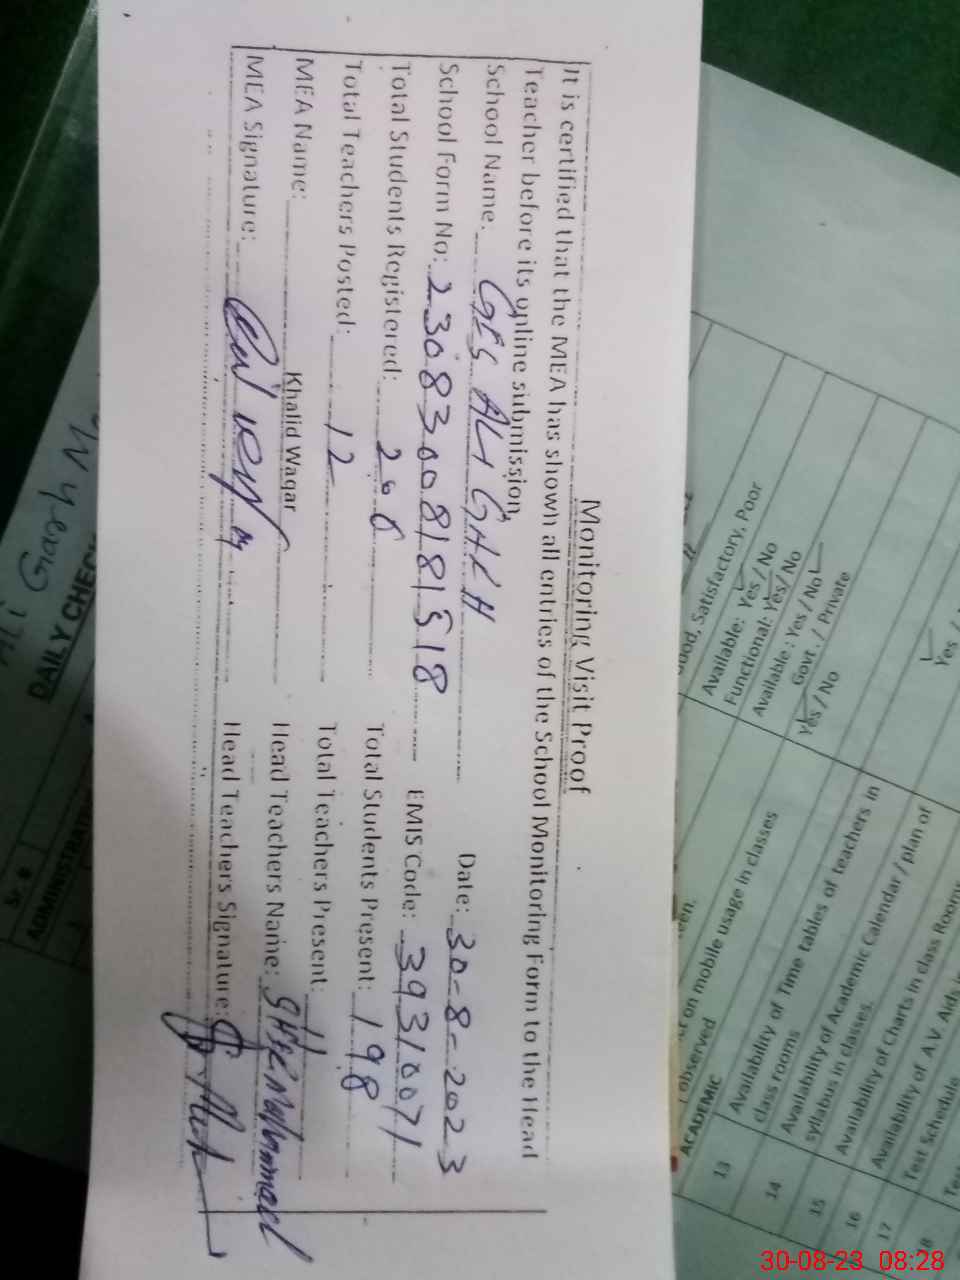 Monitoring Visit Proof
It is certified that the MEA has shown all entries of the School Monitoring Form to the Head
Teacher before its online submission.
School Name: GES ALI GHKH Date: 30-8-2023
School Form No: 23083008181518 EMIS Code: 39310071
Total Students Registered: 200 Total Students Present: 198
Total Teachers Posted: 12 Total Teachers Present: 11
MEA Name: Khalid Waqar Head Teachers Name: SHER Mohammad
MEA Signature: Head Teachers Signature:
Ali Garh
DAILY CHEC
Sr. #
ADMINISTRAT
Satisfactory, Poor
Available: Yes / No
Functional: Yes/ No
Available : Yes / No
Govt. / Private
Yes / No
Yes /
on mobile usage in classes
observed
ACADEMIC
13 Availability of Time tables of teachers in
class rooms
14 Availability of Academic Calendar / plan of
syllabus in classes.
15 Availability of Charts in class Rooms
16 Availability of A.V. Aids
17 Test Schedule
30-08-23 08:28